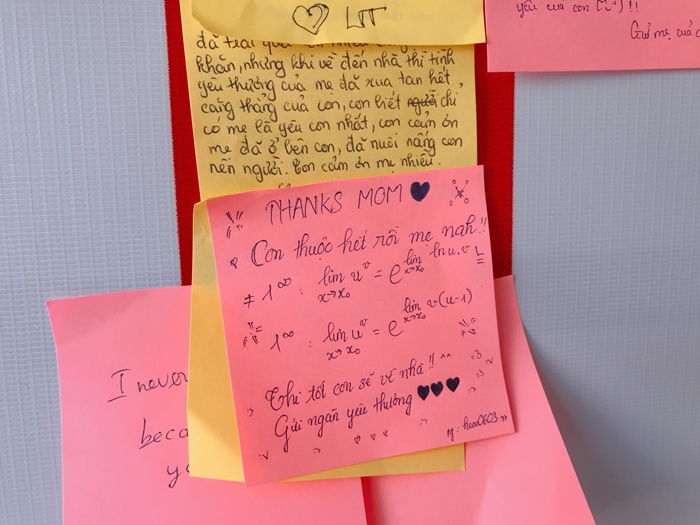 ♡ LTT
khăn, nhưng khi về đến nhà thì tình
yêu thương của mẹ đã xua tan hết
căng thẳng của con, con biết người chỉ
có mẹ là yêu con nhất, con cảm ơn
mẹ đã ở bên con, đã nuôi nấng con
nên người. Con cảm ơn mẹ nhiều.
yêu của con
Gửi mẹ của c
THANKS MOM ♥
Con thuộc hết rồi mẹ nah!!
≠ 1^∞ : lim_{x→x₀} u^v = e^{lim_{x→x₀} ln u.v}
1^∞ : lim_{x→x₀} u^v = e^{lim_{x→x₀} v(u-1)}
Thi tốt con sẽ về nhà!! ^^
Gửi ngàn yêu thương ♥♥♥
I never
beca
yo